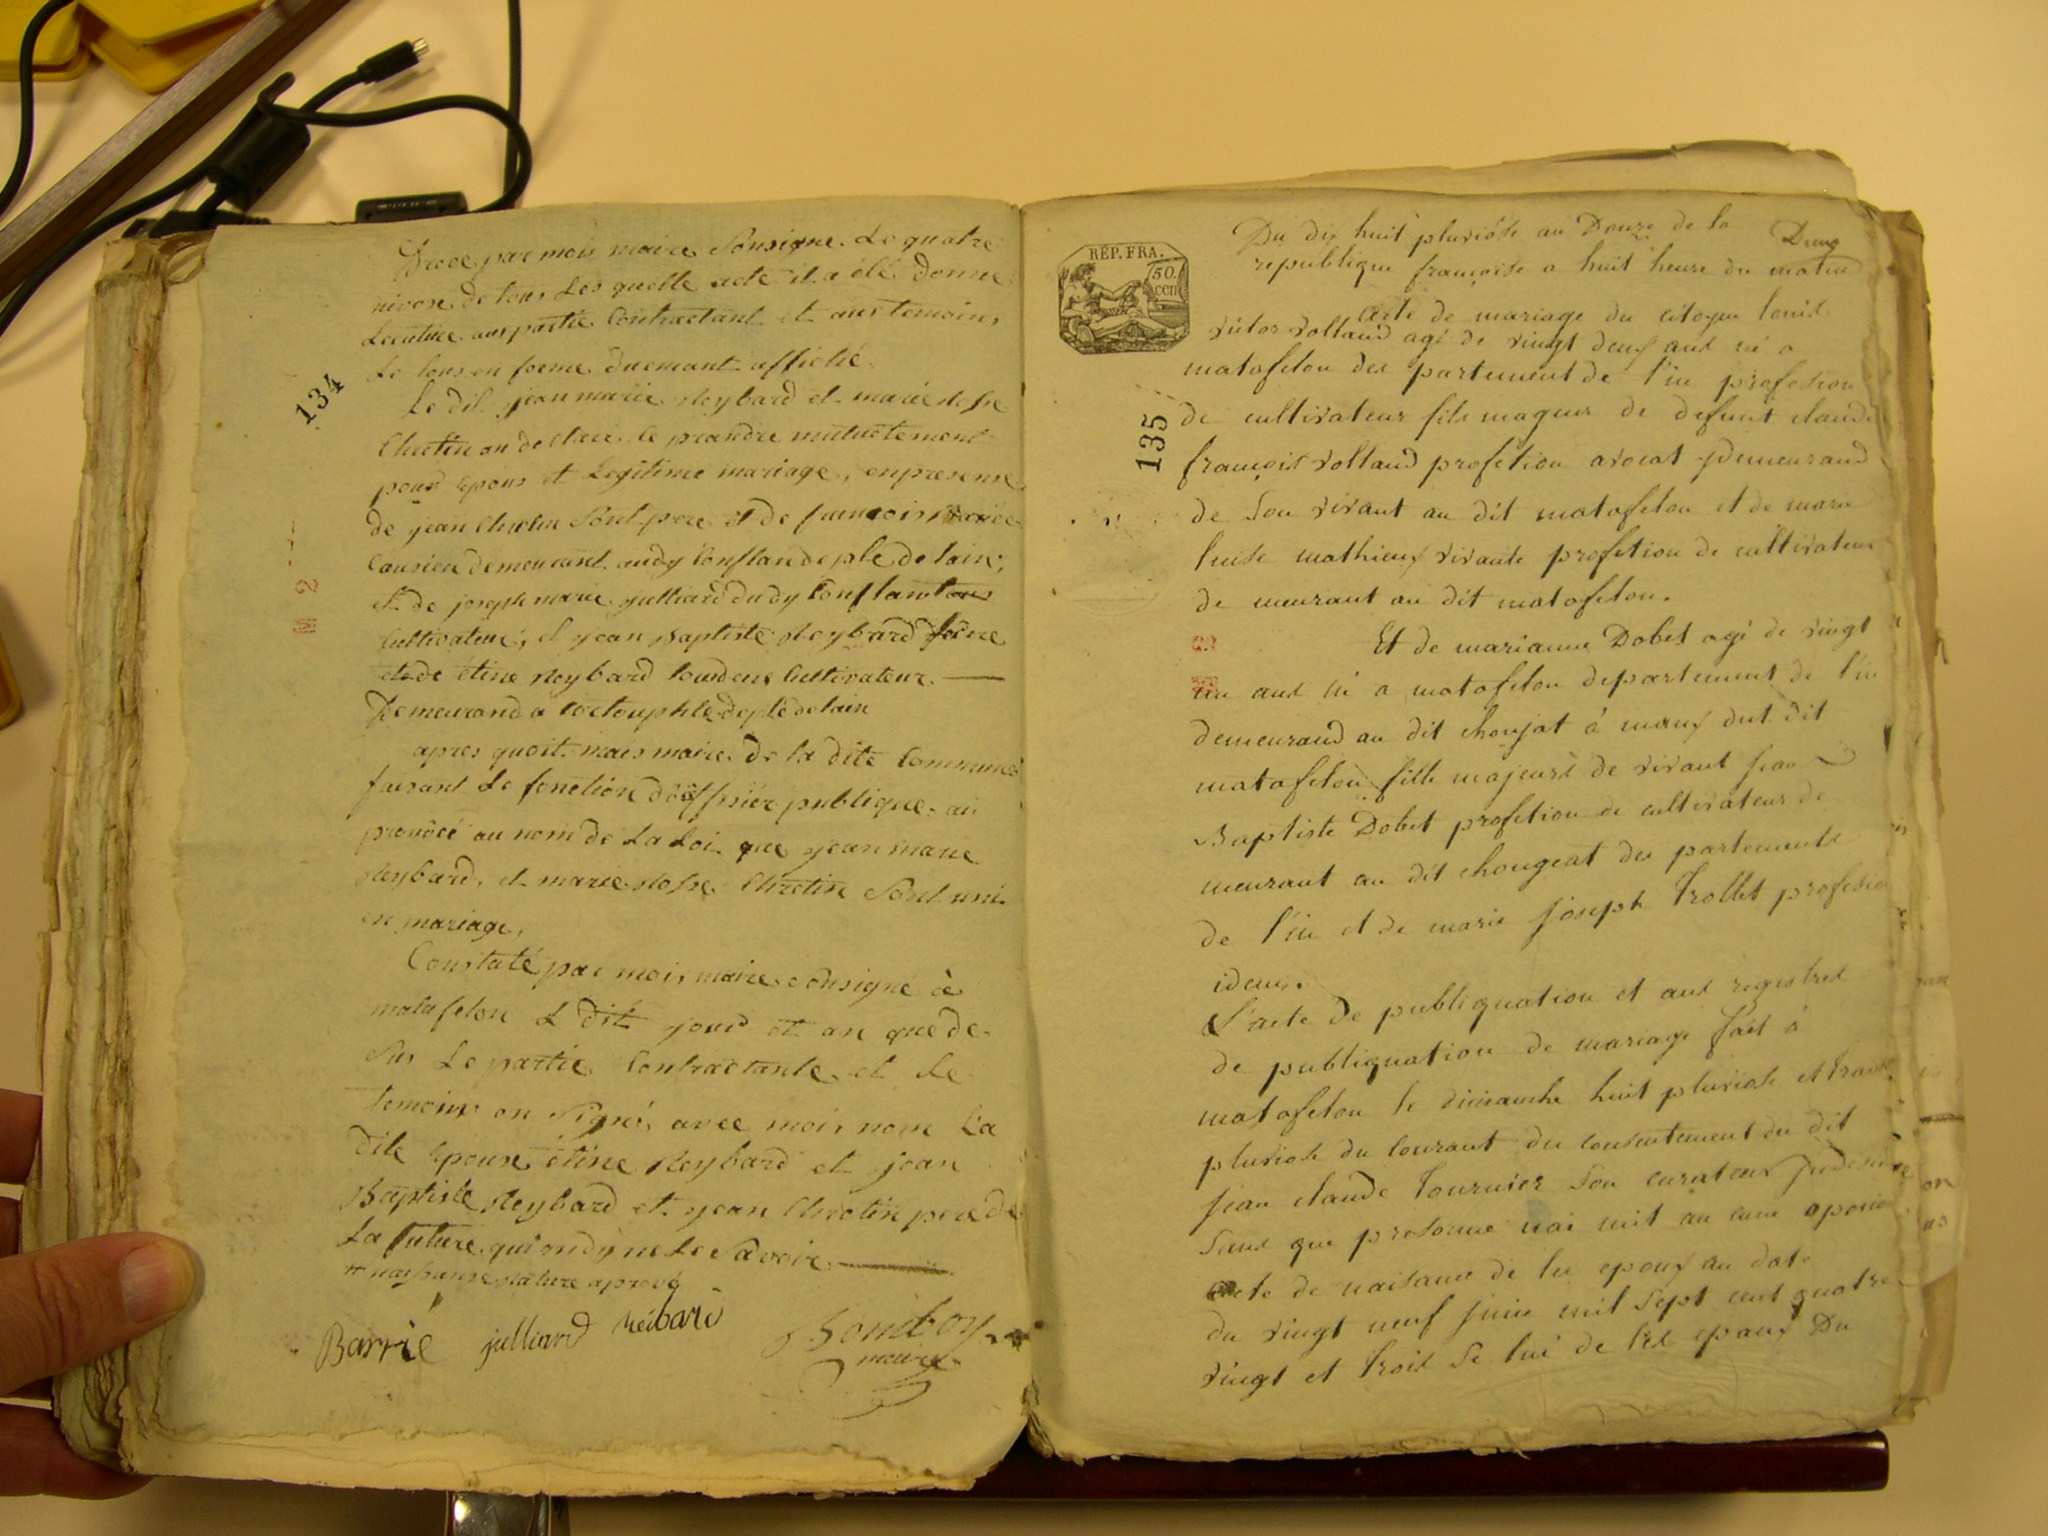 134
par mois maire Sousigne. Le quatre
nivose de tous Les quelle acte it a été donne
Lecuture aux partie Contractant et aux temoins
Le tous en forme duemant affiché.
Le dit jean marie Reybard et marie Rose
Chretin on declare. le prandre mutuelement
pour epous et Legitime mariage, enpresense
de jean Chretin Sont pere et de francois
demeurant audy Conflan de ple de lain;
et de joseph marie julliard dudy Conflant
Cultivateur, et jean Baptiste Reybard
et de etine Reybard Cultivateur.
Demeurand a
apres quoit mais maire. De la dite Commune
faisant Le fonction d'offisier publique. ai
prononcé au nom de La Loi que jean marie
Reybard, et marie Rose Chretin Sont uni
en mariage,
Constaté par mois, maire sousigne à
matafelon L dit jour et an que de
Sus Le partie Contractante et Le
temoins on Signé, avec mois, nom La
dite epouse etine Reybard et jean
Baptiste Reybard et jean Chretin pere de
La future qui ondy ne Le Savoir.
aprové
Barrié julliard Réibard Bomboy
maire
RÉP. FRA.
50.
cen
135
Du dix huit pluviose an Douze de la
republique françoise a huit heure du matin
acte de mariage du citoyen louis
victor volland agé de vingt deux ans né a
matafelon des partement de l'in profetion
de cultivateur fils mageur de defunt claude
françois volland profetion avocat demeurand
de son vivant au dit matafelon et de marie
louise mathieux vivante profetion de cultivateur
de meurant au dit matafelon.
Et de marianne Dobet agé de vingt
un ans né a matafelon departement de l'in
demeurand au dit choujat à dut dit
matafelon fille majeure de vivant jean
Baptiste Dobet profetion de cultivateur de
meurant au dit chougeat des partement
de l'in et de marie joseph trollet profetion
idem.
L'acte de publiquation et aux registres
de publiquation de mariage fait à
matafelon le dimanche huit pluviose et
pluviose du courant du consentement du dit
jean claude tournier son curateur
sans que persone nai mit au cune
acte de naisance de lu epoux au date
du vingt neuf juin mil sept cent quatre
vingt et trois se lui de les epoux Du